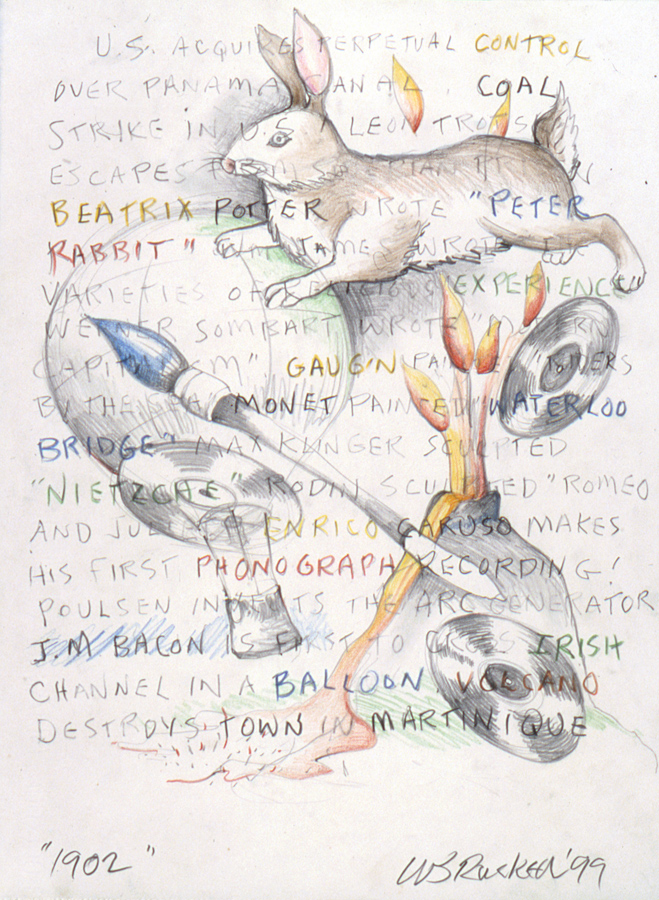 U.S. ACQUIRES PERPETUAL CONTROL
OVER PANAMA CANAL, COAL
STRIKE IN U.S! LEON TROTS
ESCAPES FROM
BEATRIX POTTER WROTE "PETER
RABBIT" WM JAMES WROTE
VARIETIES OF RELIGIOUS EXPERIENCE
WERNER SOMBART WROTE "MODERN
CAPITALISM" GAUG'N PAINTED "RIDERS
BY THE SEA" MONET PAINTED "WATERLOO
BRIDGE" MAX KLINGER SCULPTED
"NIETZCHE" RODIN SCULPTED "ROMEO
AND JULIET" ENRICO CARUSO MAKES
HIS FIRST PHONOGRAPH RECORDING!
POULSEN INVENTS THE ARC GENERATOR
J.M BACON IS FIRST TO CROSS IRISH
CHANNEL IN A BALLOON VOLCANO
DESTROYS TOWN IN MARTINIQUE
"1902" '99